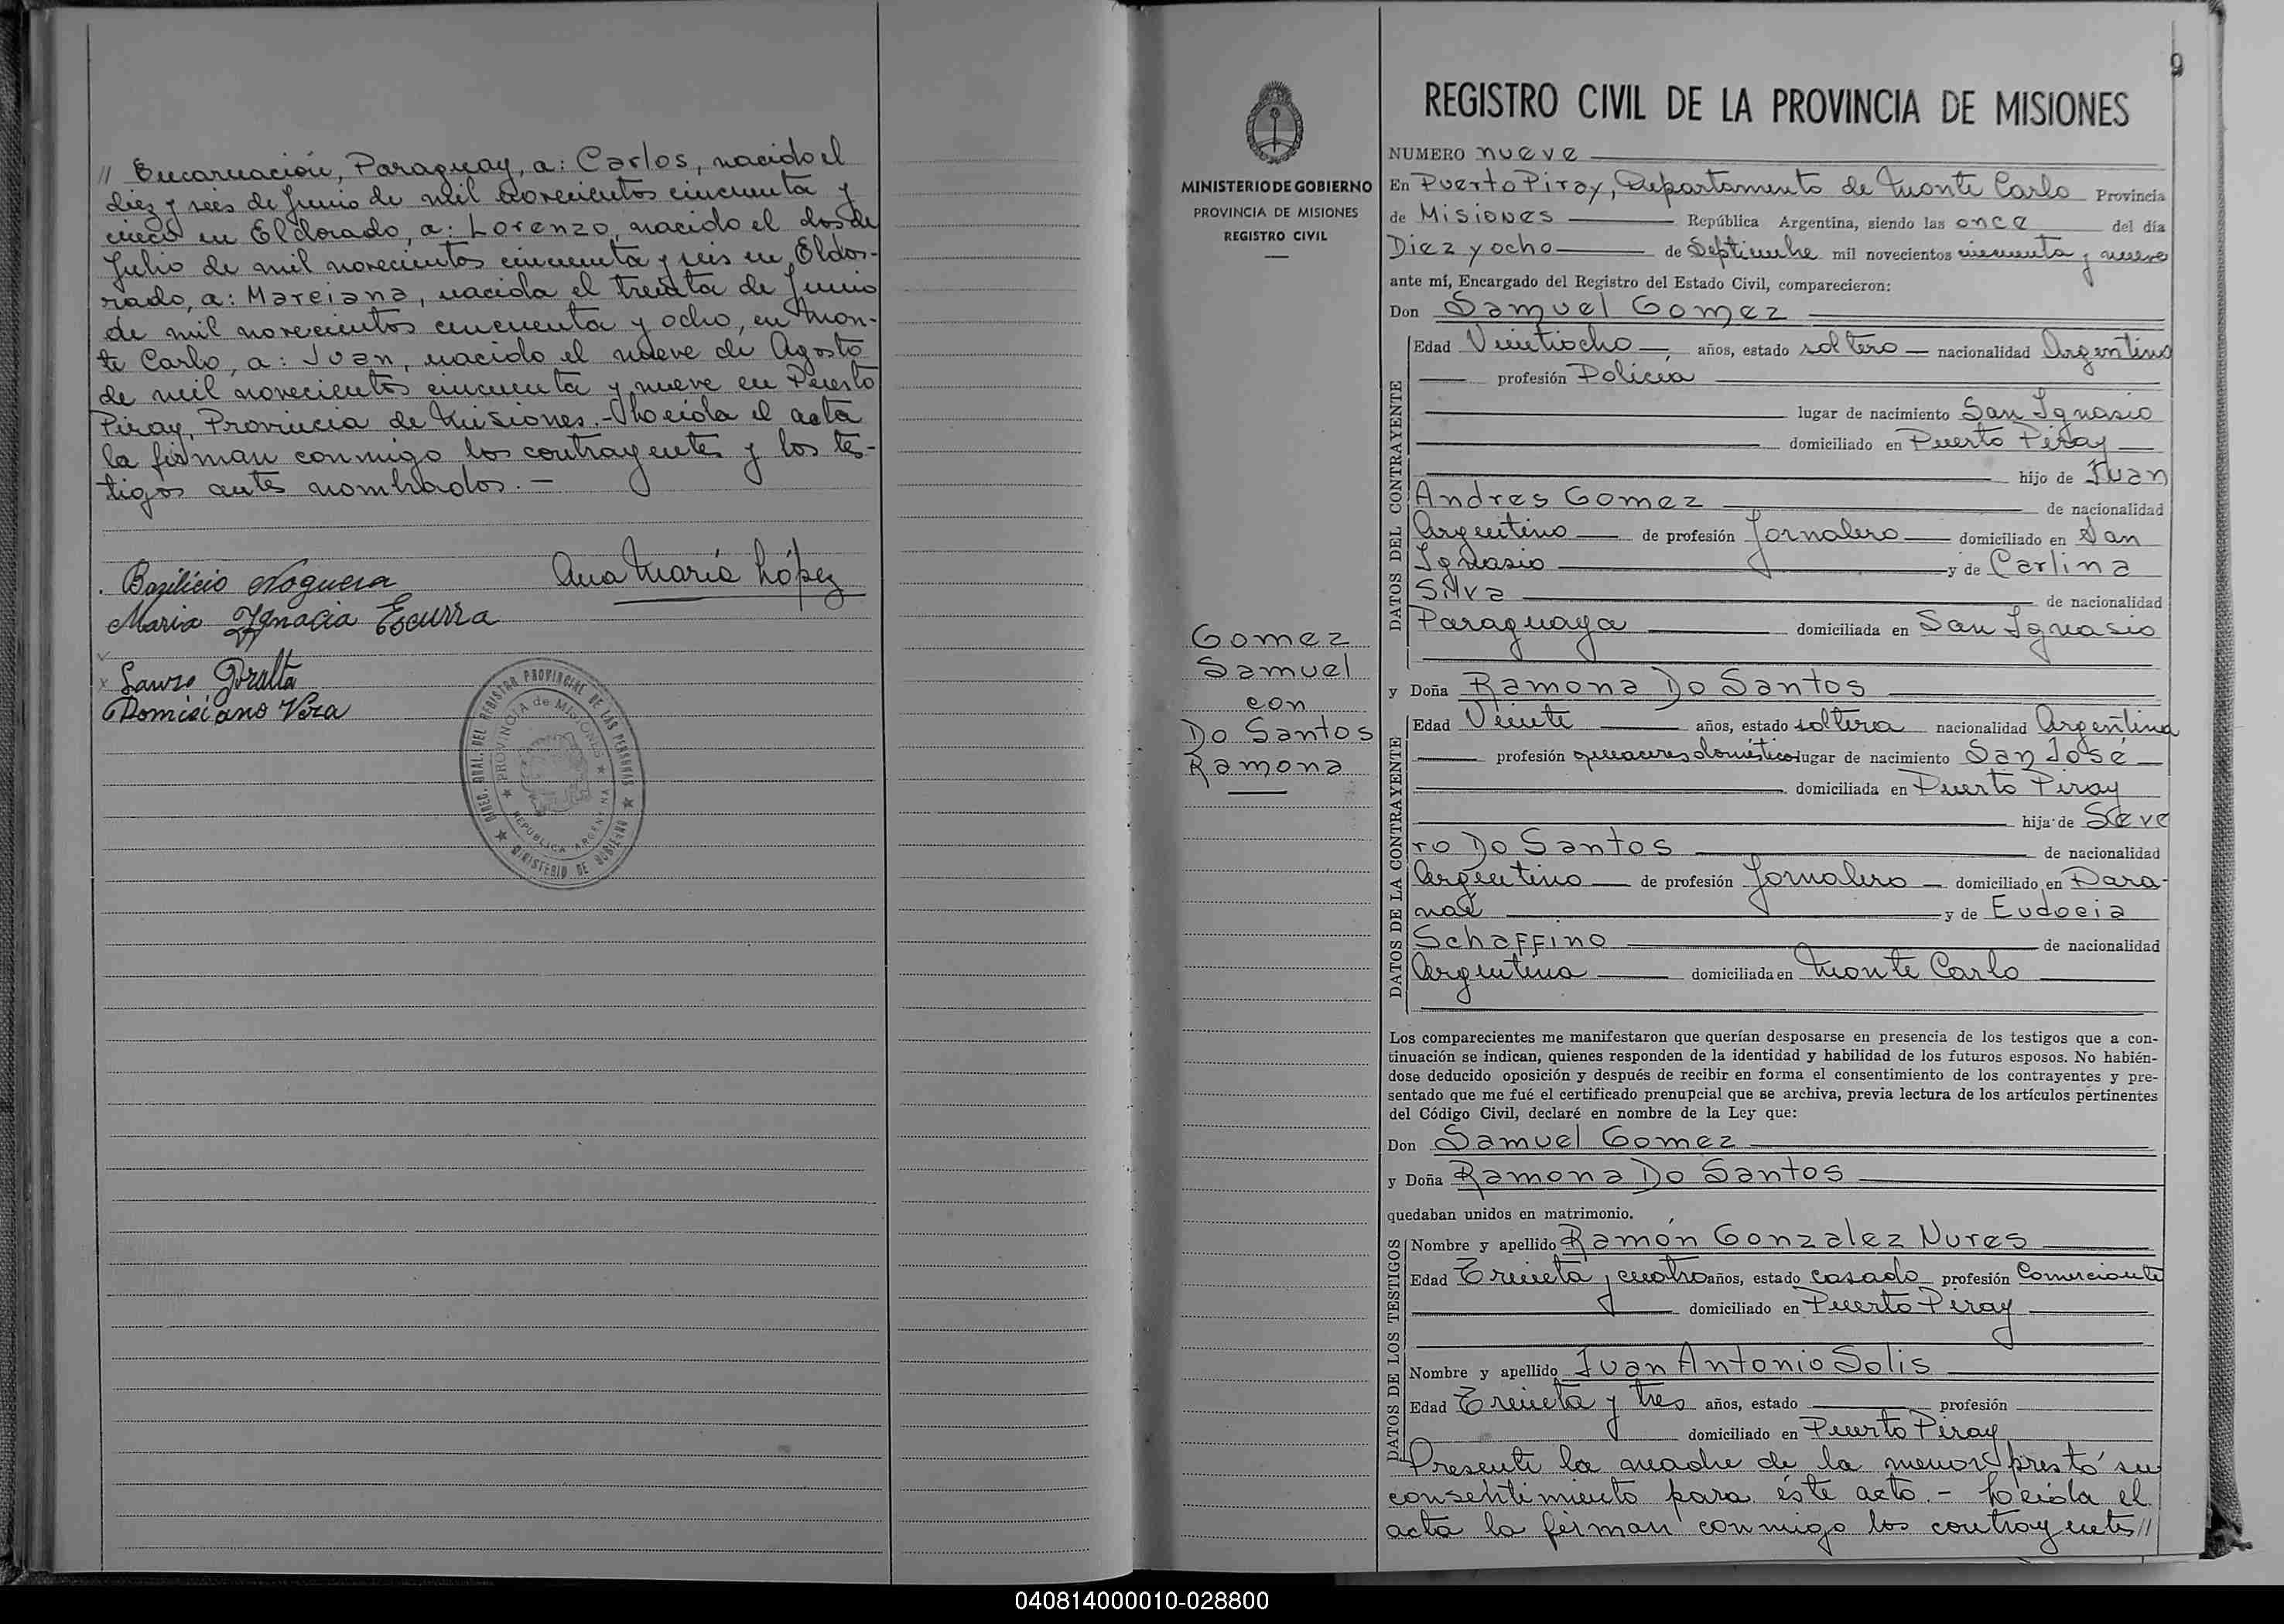 // Encarnación, Paraguay, a: Carlos, nacido el
diez y seis de Junio de mil novecientos cincuenta y
cinco en Eldorado, a: Lorenzo, nacido el dos de
Julio de mil novecientos cincuenta y seis en Eldo-
rado, a: Marciana, nacida el treinta de Junio
de mil novecientos cincuenta y ocho, en Mon-
te Carlo, a: Juan, nacido el nueve de Agosto
de mil novecientos cincuenta y nueve en Puerto
Piray, Provincia de Misiones.- Leída el acta
la firman conmigo los contrayentes y los tes-
tigos antes nombrados.-
Bazilicio Noguera
Ana María López
Maria Ygnacia Escurra
Peralta
Domiciano Vera
DIREC. GRAL. DEL REGISTRO PROVINCIAL DE LAS PERSONAS
PROVINCIA de MISIONES
REPUBLICA ARGENTINA
MINISTERIO DE GOBIERNO
9
MINISTERIO DE GOBIERNO
PROVINCIA DE MISIONES
REGISTRO CIVIL
Gomez
Samuel
con
Do Santos
Ramona
REGISTRO CIVIL DE LA PROVINCIA DE MISIONES
NUMERO nueve
En Puerto Piray, Departamento de Monte Carlo Provincia
de Misiones República Argentina, siendo las once del día
Diez y ocho de Septiembre mil novecientos cincuenta y nueve
ante mí, Encargado del Registro del Estado Civil, comparecieron:
Don Samuel Gomez
DATOS DEL CONTRAYENTE
Edad Veintiocho años, estado soltero nacionalidad Argentino
profesión Policia
lugar de nacimiento San Ignasio
domiciliado en Puerto Piray
hijo de Juan
Andres Gomez de nacionalidad
Argentino de profesión Jornalero domiciliado en San
Ignasio y de Carlina
Silva de nacionalidad
Paraguaya domiciliada en San Ignasio
y Doña Ramona Do Santos
DATOS DE LA CONTRAYENTE
Edad Veinte años, estado soltera nacionalidad Argentina
profesión quehaceres domésticos lugar de nacimiento San José
domiciliada en Puerto Piray
hija de Seve
ro Do Santos de nacionalidad
Argentino de profesión Jornalero domiciliado en Para-
naé y de Eudocia
Schaffino de nacionalidad
Argentina domiciliada en Monte Carlo
Los comparecientes me manifestaron que querían desposarse en presencia de los testigos que a con-
tinuación se indican, quienes responden de la identidad y habilidad de los futuros esposos. No habién-
dose deducido oposición y después de recibir en forma el consentimiento de los contrayentes y pre-
sentado que me fué el certificado prenupcial que se archiva, previa lectura de los artículos pertinentes
del Código Civil, declaré en nombre de la Ley que:
Don Samuel Gomez
y Doña Ramona Do Santos
quedaban unidos en matrimonio.
DATOS DE LOS TESTIGOS
Nombre y apellido Ramón Gonzalez Nures
Edad Treinta y cuatro años, estado casado profesión Comerciante
domiciliado en Puerto Piray
Nombre y apellido Juan Antonio Solis
Edad Treinta y tres años, estado profesión
domiciliado en Puerto Piray
Presente la madre de la menor prestó su
consentimiento para éste acto.- Leída el
acta la firman conmigo los contrayentes//
040814000010-028800